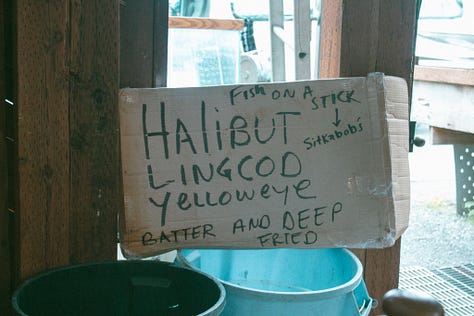 FISH ON A STICK
↓
Sitkabob's
HALIBUT
LINGCOD
Yelloweye
BATTER AND DEEP
FRIED